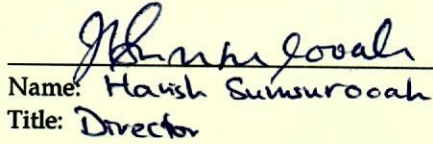 Name: Harish Sumsurooah
Title: Director